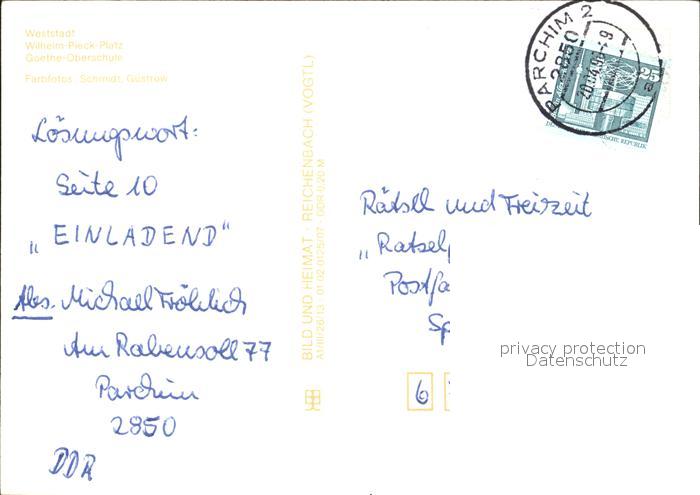 Weststadt
Wilhelm-Pieck-Platz
Goethe-Oberschule
Farbfotos: Schmidt, Güstrow
Lösungswort:
Seite 10
„EINLADEND"
Abs. Michael Fröhlich
Am Rabensoll 77
Parchim
2850
DDR
BILD UND HEIMAT · REICHENBACH (VOGTL)
A1/III/26/13 01 02 0125/07 · DDR 0,20 M
PARCHIM 2
2850
a
25
Rätsel und Freizeit
„Ratsel
Postfa
Sp
6
privacy protection
Datenschutz